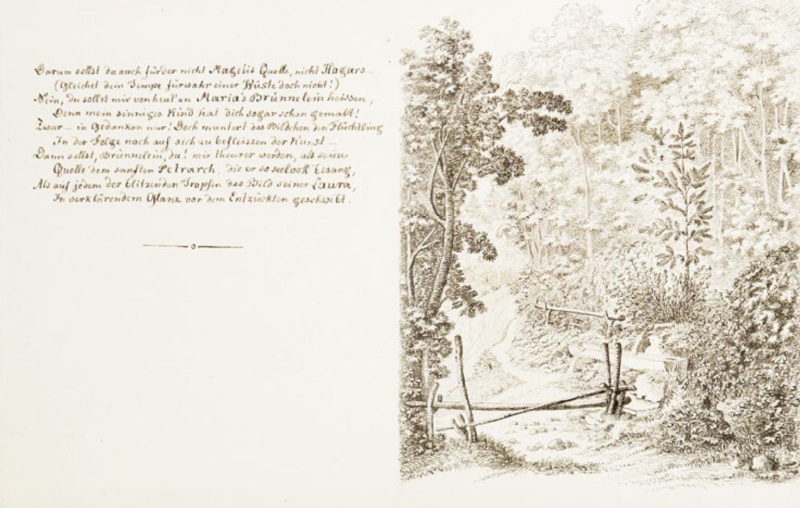 Darum sollst du auch fürder nicht Magelis Quelle, nicht Hagars —
(Gleichet dein Tempe fürwahr einer Wüste doch nicht!)
Nein, du sollst mir von heut' an Maria's Brünnelein heissen,
Denn mein sinniges Kind hat dich sogar schon gemahlt!
Zwar — in Gedanken nur! Doch muntert das Bildchen den Flüchtling
In der Folge noch auf sich zu befleissen der Kunst —
Dann sollst, Brünnelein, du! mir theurer werden, als seine
Quelle dem sanften Petrarch, die er so seelvoll besang,
Als auf jedem der blitzenden Tropfen das Bild seiner Laura,
In verklärendem Glanz vor dem Entzückten geschwebt.